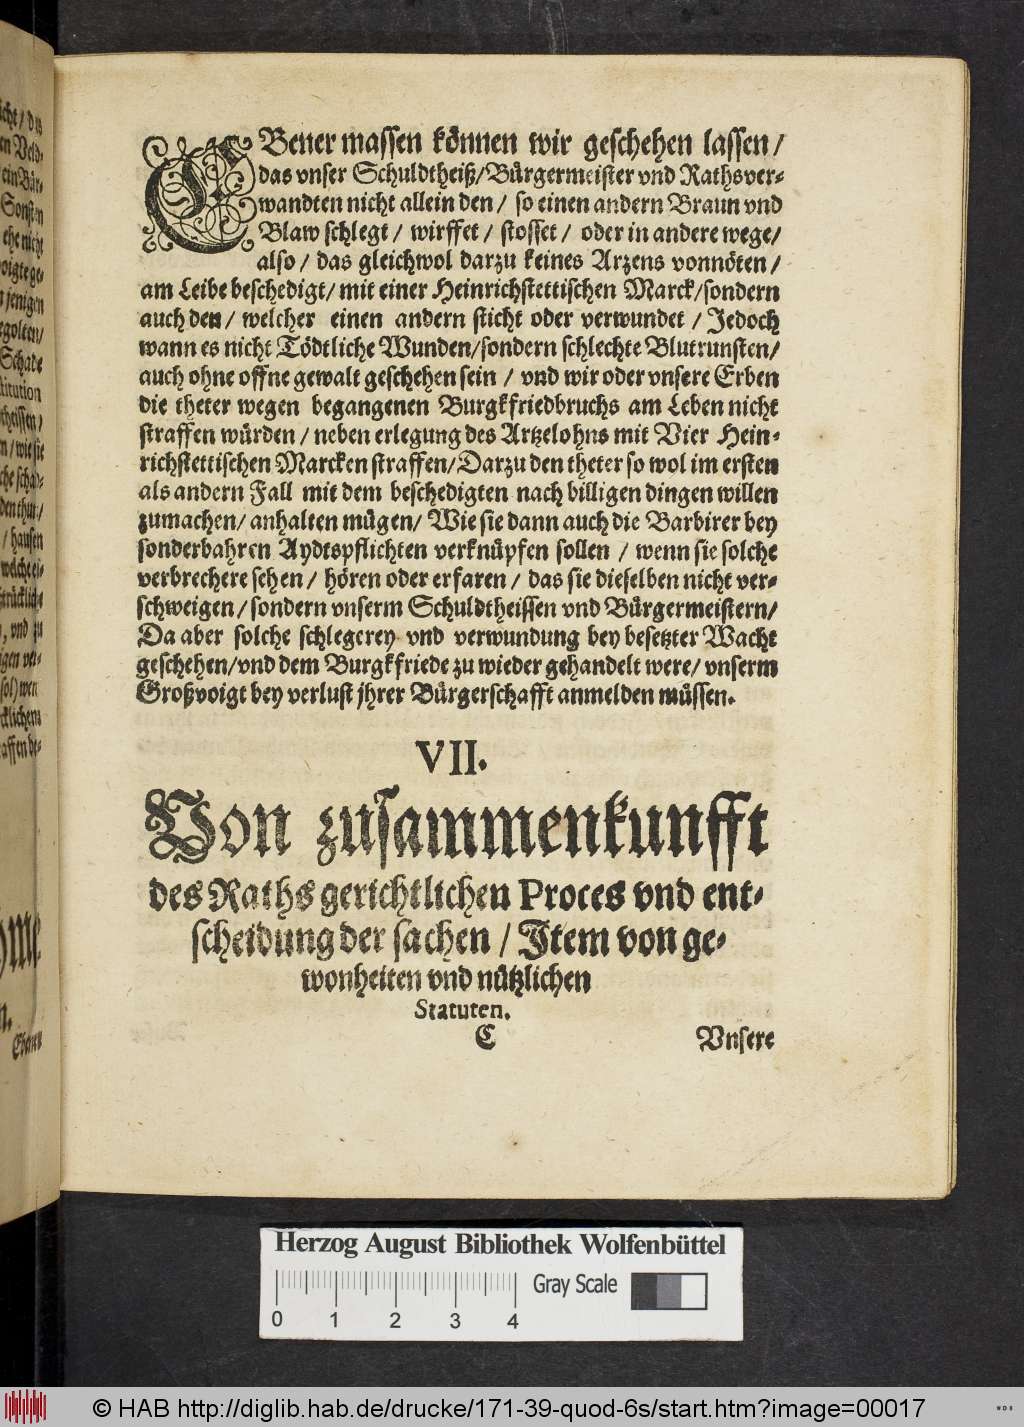 EBener massen können wir geschehen lassen /
das vnser Schuldtheiß/Bürgermeister vnd Rathsver-
wandten nicht allein den / so einen andern Braun vnd
Blaw schlegt / wirffet / stosset / oder in andere wege/
also / das gleichwol darzu keines Arzens vonnöten /
am Leibe beschedigt/ mit einer Heinrichstettischen Marck/sondern
auch den / welcher einen andern sticht oder verwundet / Jedoch
wann es nicht Tödtliche Wunden/sondern schlechte Blutrunsten/
auch ohne offne gewalt geschehen sein / vnd wir oder vnsere Erben
die theter wegen begangenen Burgkfriedbruchs am Leben nicht
straffen würden / neben erlegung des Artzelohns mit Vier Hein-
richstettischen Marcken straffen/Darzu den theter so wol im ersten
als andern Fall mit dem beschedigten nach billigen dingen willen
zumachen/ anhalten mügen/ Wie sie dann auch die Barbirer bey
sonderbahren Aydtspflichten verknüpfen sollen / wenn sie solche
verbrechere sehen / hören oder erfaren / das sie dieselben nicht ver-
schweigen/ sondern vnserm Schuldtheissen vnd Bürgermeistern/
Da aber solche schlegerey vnd verwundung bey besetzter Wacht
geschehen/vnd dem Burgkfriede zu wieder gehandelt were/ vnserm
Großvoigt bey verlust jhrer Bürgerschafft anmelden müssen.
VII.
Von zusammenkunfft
des Raths gerichtlichen Proces vnd ent-
scheidung der sachen / Item von ge-
wonheiten vnd nützlichen
Statuten.
C Vnsere
Herzog August Bibliothek Wolfenbüttel
Gray Scale
0 1 2 3 4
© HAB http://diglib.hab.de/drucke/171-39-quod-6s/start.htm?image=00017